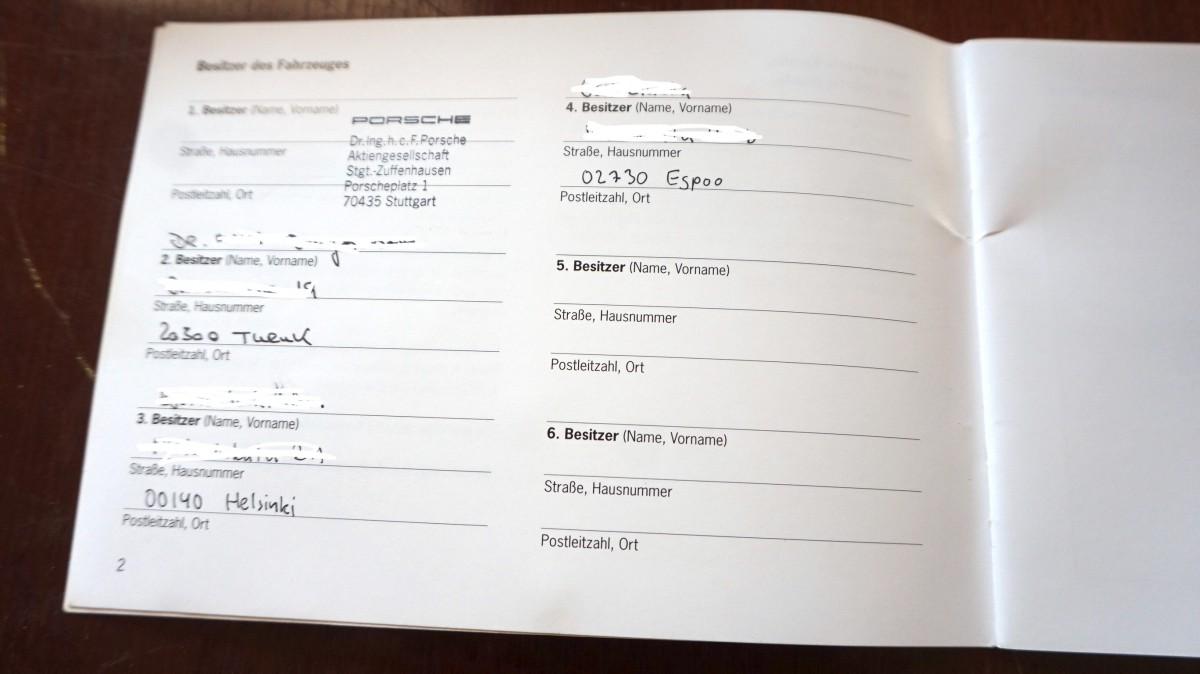 Besitzer des Fahrzeuges
1. Besitzer (Name, Vorname)
PORSCHE
Dr.Ing.h.c.F.Porsche
Straße, Hausnummer
Aktiengesellschaft
Stgt.-Zuffenhausen
Postleitzahl, Ort
Porscheplatz 1
70435 Stuttgart
DR.
2. Besitzer (Name, Vorname)
Straße, Hausnummer
20300 Turku
Postleitzahl, Ort
3. Besitzer (Name, Vorname)
Straße, Hausnummer
00140 Helsinki
Postleitzahl, Ort
2
4. Besitzer (Name, Vorname)
Straße, Hausnummer
02730 Espoo
Postleitzahl, Ort
5. Besitzer (Name, Vorname)
Straße, Hausnummer
Postleitzahl, Ort
6. Besitzer (Name, Vorname)
Straße, Hausnummer
Postleitzahl, Ort